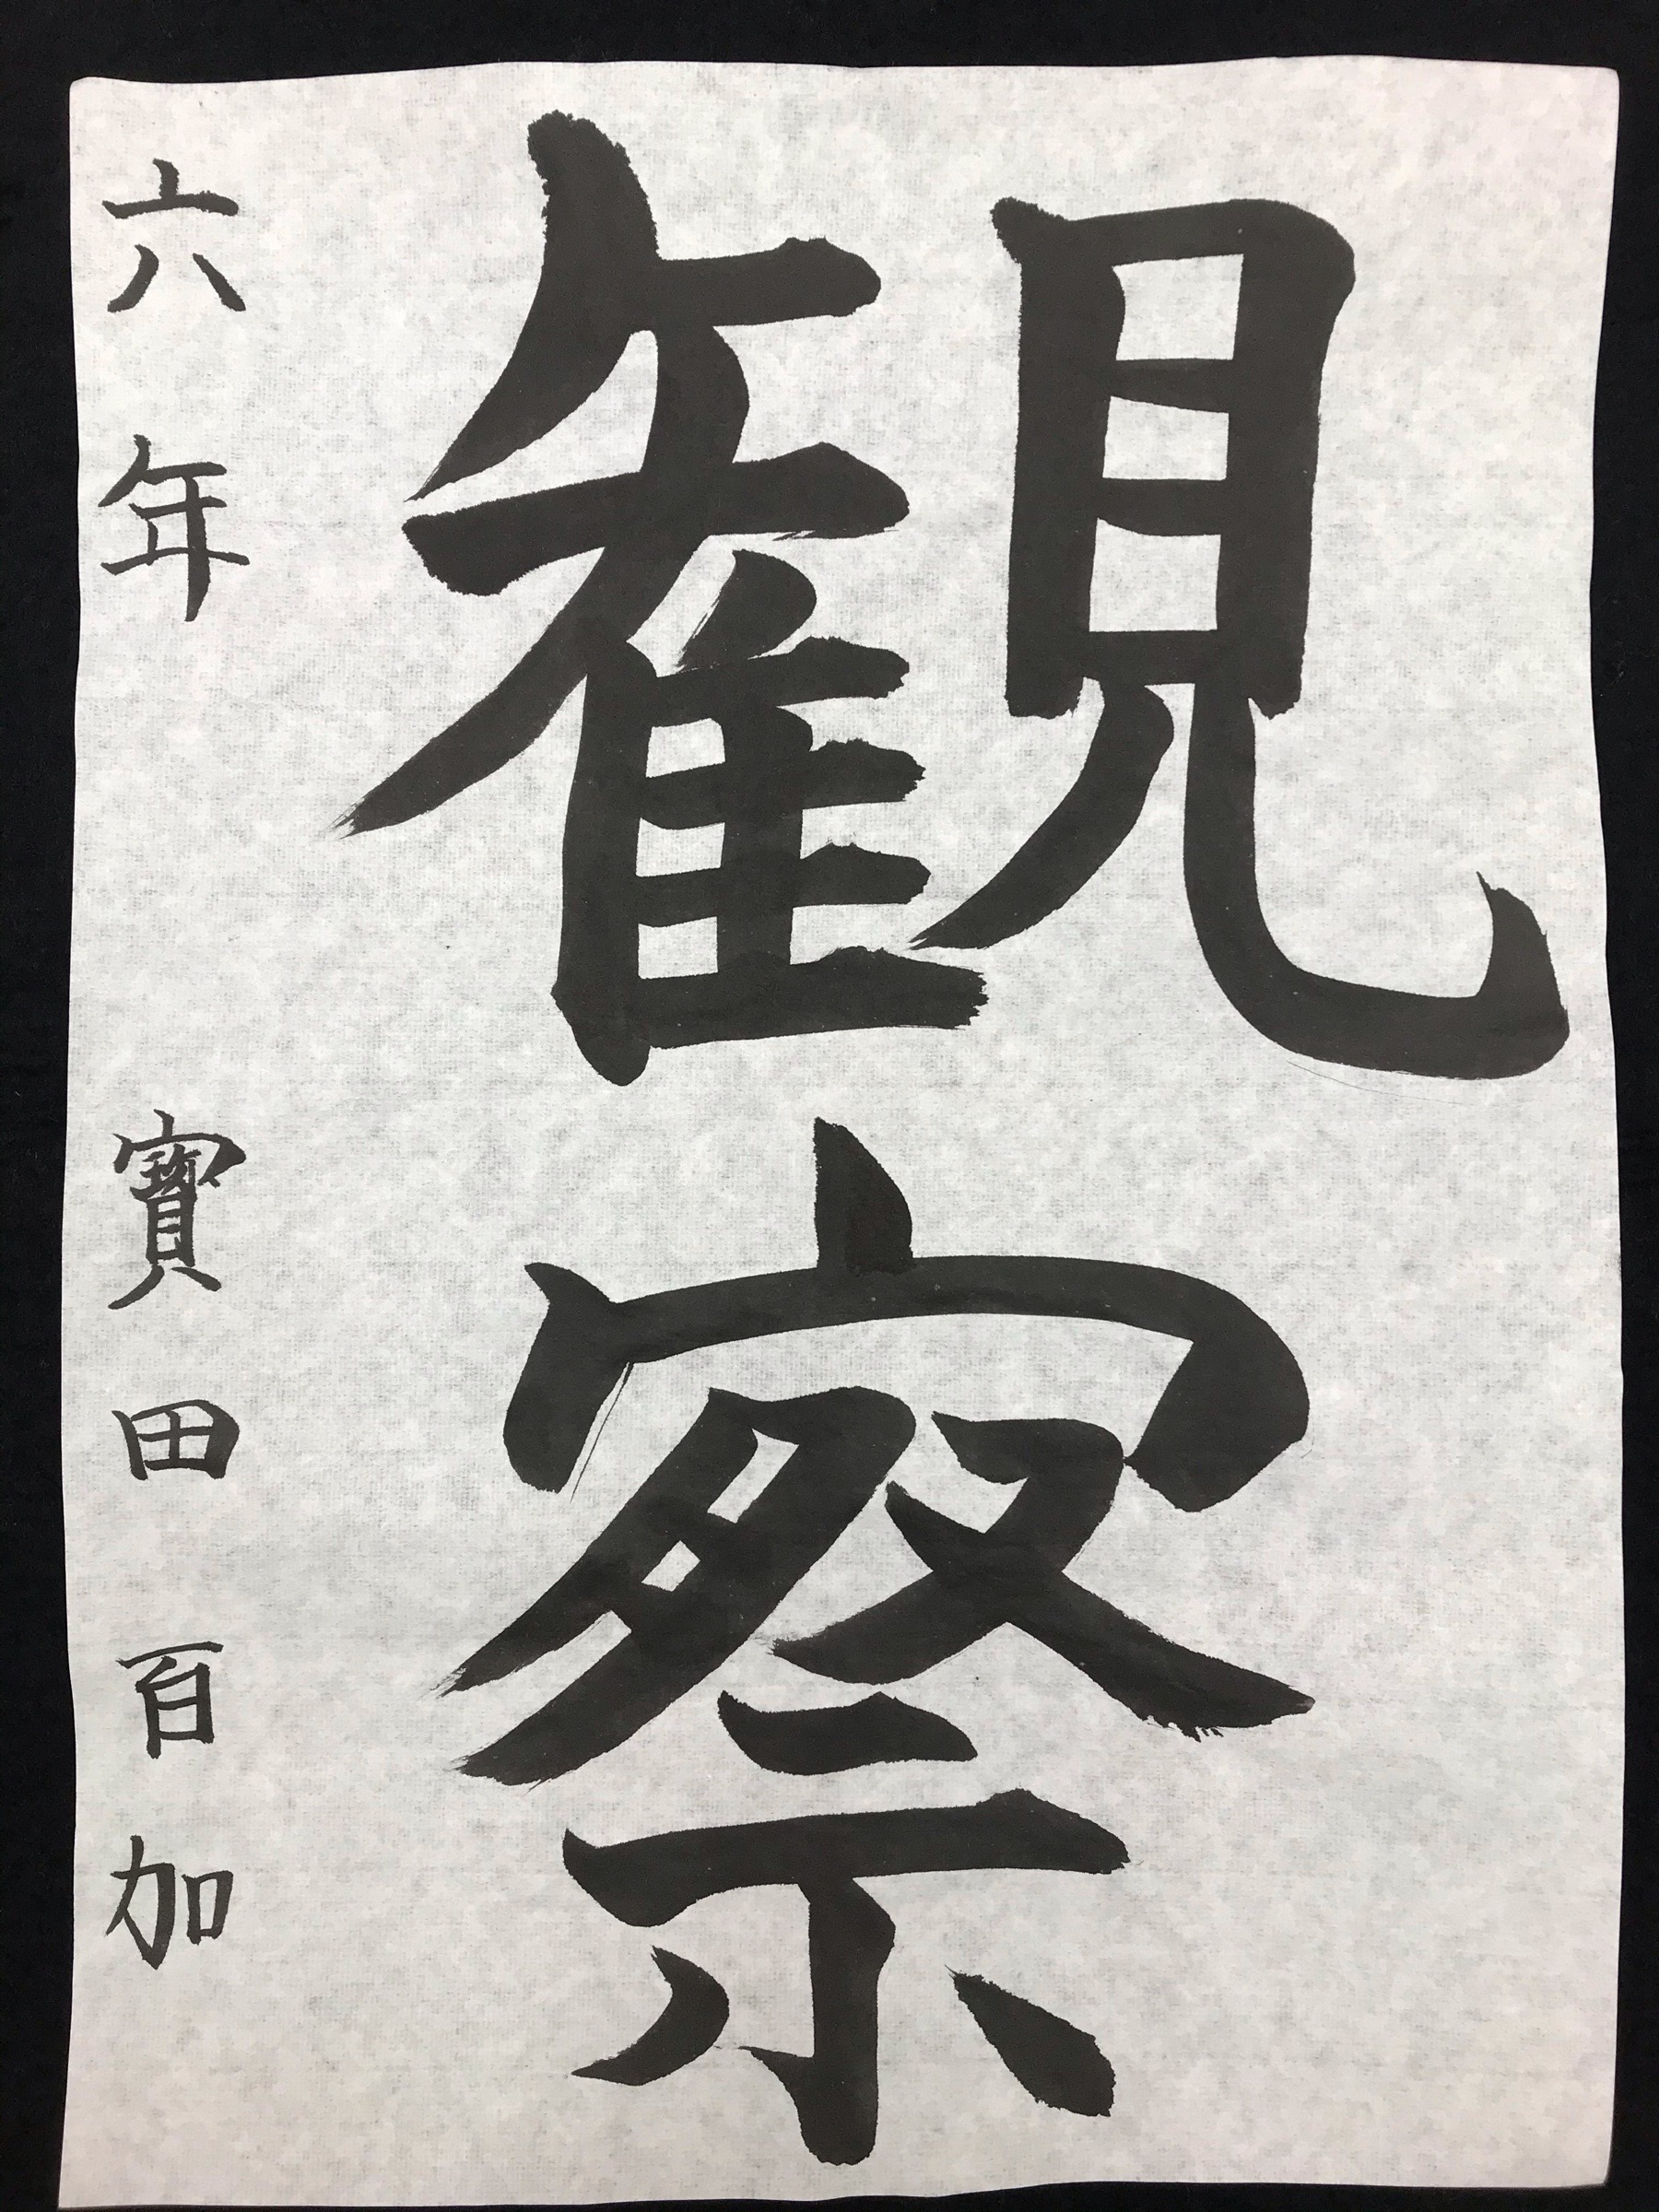 観察
六年 寳田百加